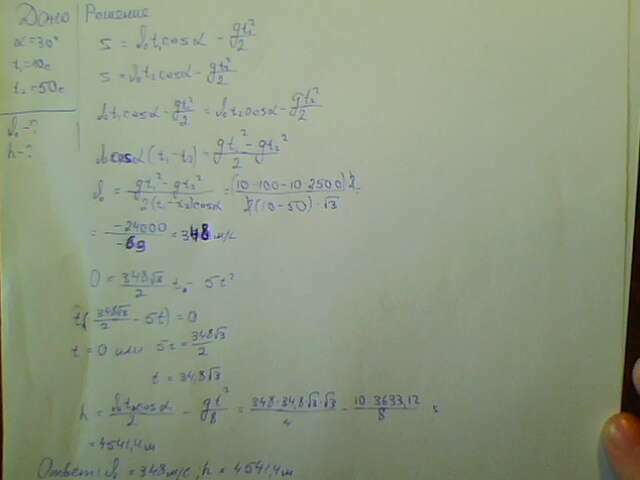 Дано
Решение
α=30°
t₁=10c
t₂=50c
h-?
S = V₀t₁cosα - gt₁²/2
S = V₀t₂cosα - gt₂²/2
V₀t₁cosα - gt₁²/2 = V₀t₂cosα - gt₂²/2
V₀cosα(t₁-t₂) = gt₁² - gt₂²/2
V₀ = gt₁² - gt₂²/2(t₁-t₂)cosα = (10·100-10·2500)·2/2(10-50)·√3
= -24000/-69 = 348 м/с
0 = 348√3/2 t - 5t²
t(348√3/2 - 5t) = 0
t = 0 или 5t = 348√3/2
t = 34,8√3
h = V₀tcosα/2 - gt²/8 = 348·34,8√3·√3/4 - 10·3633,12/8 =
= 4541,4 м
Ответ: V₀ = 348 м/с, h = 4541,4 м